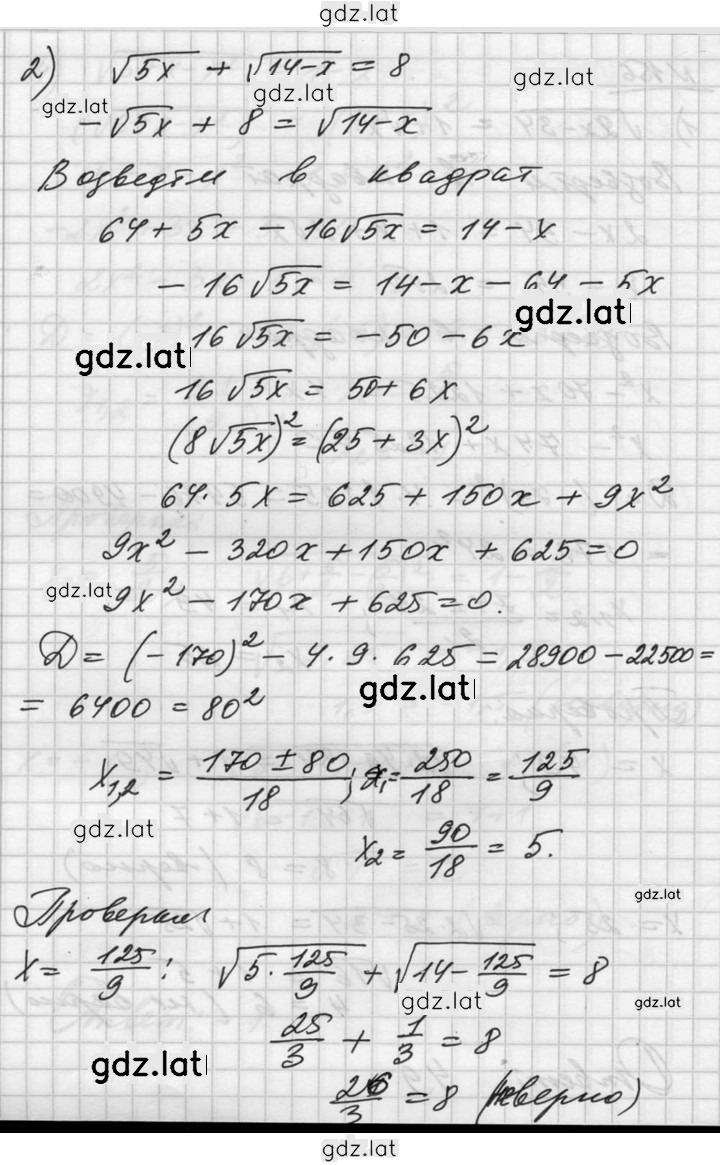 gdz.lat
2) √5x + √14-x = 8
gdz.lat gdz.lat gdz.lat
-√5x + 8 = √14-x
Возведём в квадрат
64 + 5x - 16√5x = 14 - x
- 16√5x = 14 - x - 64 - 5x
gdz.lat
16√5x = -50 - 6x
gdz.lat
16√5x = 50 + 6x
(8√5x)² = (25 + 3x)²
64 · 5x = 625 + 150x + 9x²
9x² - 320x + 150x + 625 = 0
gdz.lat
9x² - 170x + 625 = 0.
D = (-170)² - 4 · 9 · 625 = 28900 - 22500 =
gdz.lat
= 6400 = 80²
x₁,₂ = 170 ± 80 / 18 ; x₁ = 250/18 = 125/9
gdz.lat
x₂ = 90/18 = 5.
gdz.lat
Проверим
x = 125/9 : √5 · 125/9 + √14 - 125/9 = 8
gdz.lat gdz.lat
25/3 + 1/3 = 8
gdz.lat
26/3 = 8 (неверно)
gdz.lat